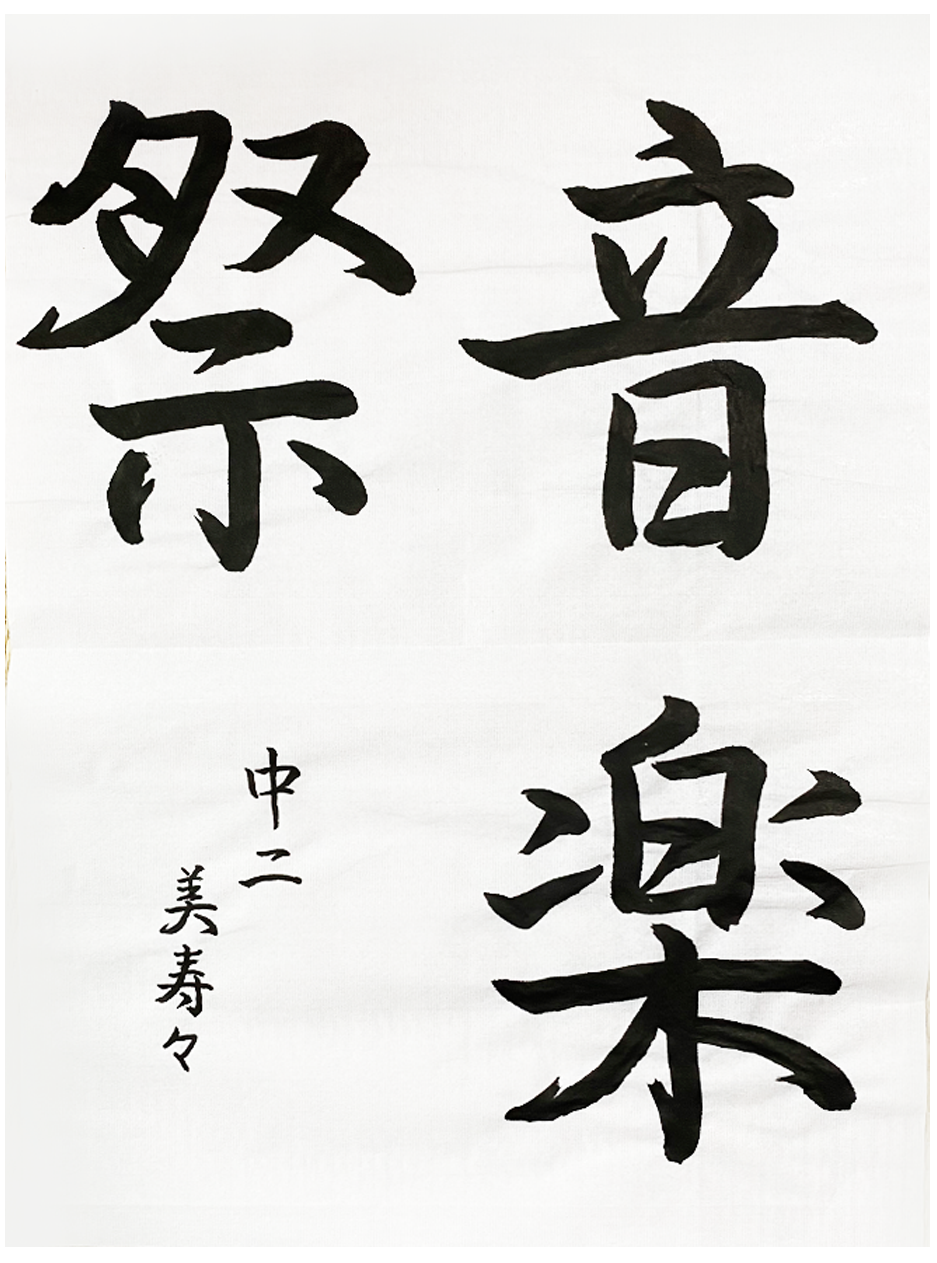 音楽
祭
中二
美寿々